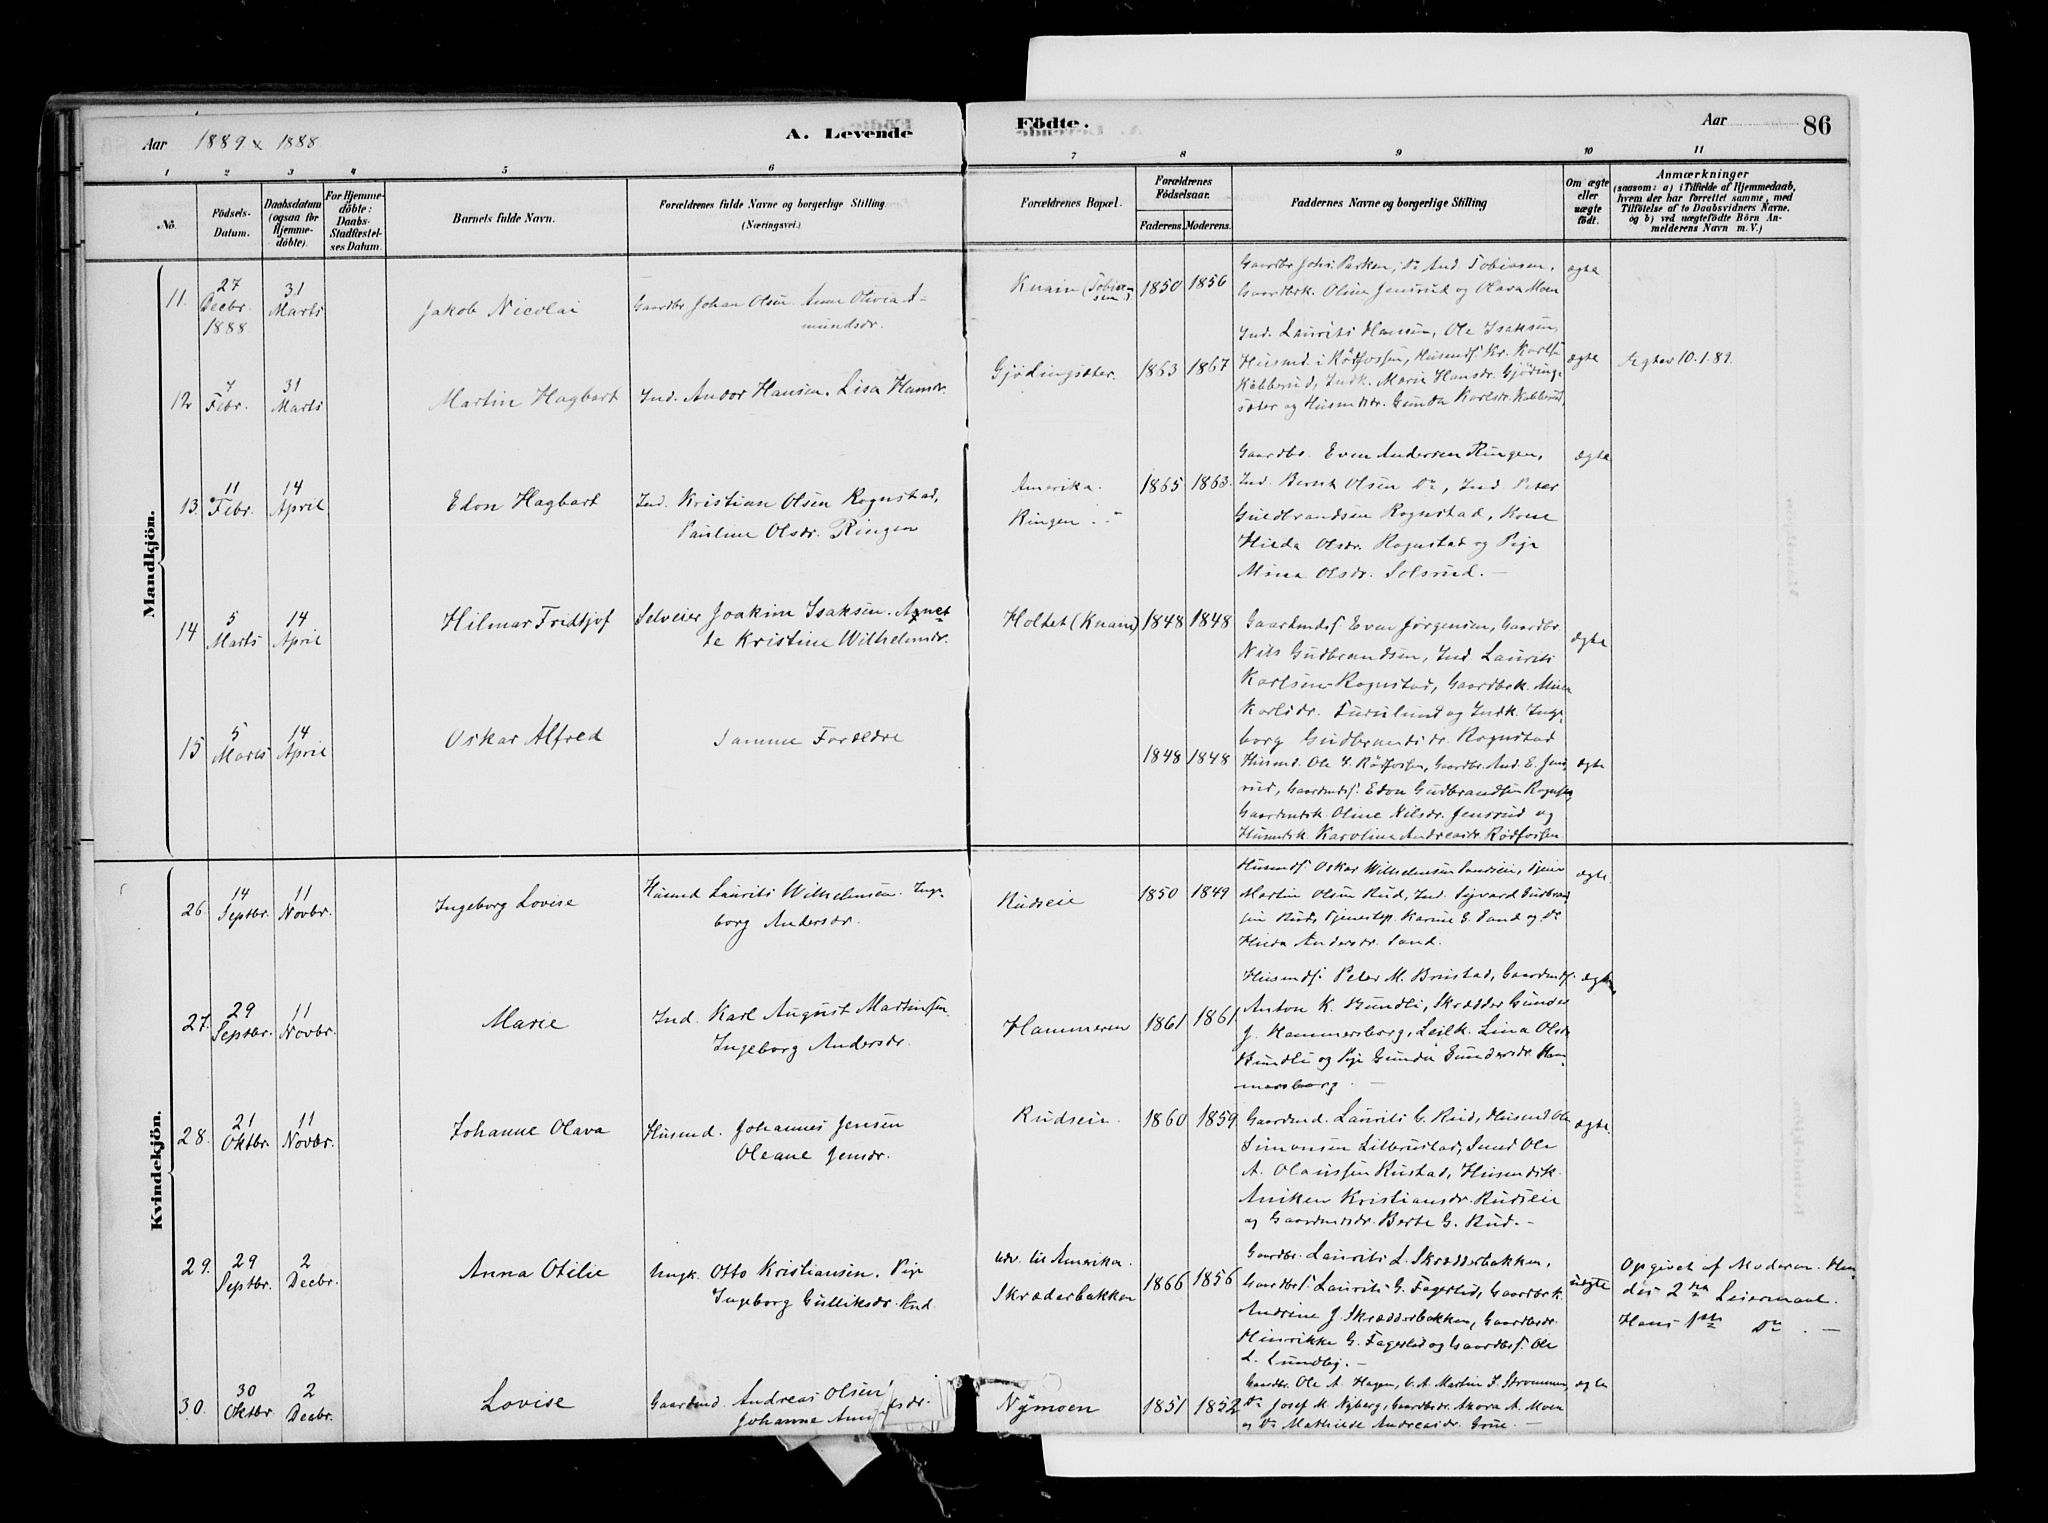 Aar 1889 x 1888 A. Levende Födte. Aar 86
1 2 3 4 5 6 7 8 9 10 11
No.
Födsels-
Datum.
Daabsdatum
(ogsaa for
Hjemme-
döbte).
For Hjemme-
döbte:
Daabs-
Stadfæstel-
ses Datum.
Barnets fulde Navn.
Forældrenes fulde Navne og borgerlige Stilling
(Næringsvei.)
Forældrenes Bopæl.
Forældrenes
Födselsaar.
Faderens. Moderens.
Faddernes Navne og borgerlige Stilling
Om ægte
eller
uægte
födt.
Anmærkninger
(saasom: a) i Tilfælde af Hjemmedaab,
hvem der har forrettet samme, med
Tilföielse af to Daabsvidners Navne,
og b) ved uægtefödte Börn An-
melderens Navn m. V.)
Mandkjön.
11. 27 Decbr. 1888
31 Marts
Jakob Nicolai
Gaardbr. Johan Olsen. Anne Olivia A-
mundsdr.
Knain (Tobias
sen)
1850 1856
Gaardbr Johs. Parken, Do And. Tobiassen,
Gaardbrk. Oline Jensrud og Olava Moen
ægte
12 7 Febr.
31 Marts
Martin Hagbart
Ind. Andor Hansen. Lisa Hansdr.
Gjödingsæter.
1863 1867
Ind. Laurits Hansen, Ole Isaksen,
Husmd i Rödfossen, Husmdsf. Kr. Karlse
Kabberud, Indk. Marie Hansdr. Gjöding-
sæter og Husmdsdr. Gunda Karlsdr. Kabberud,
ægte
Ægtev 10.1.89.
13. 11 Febr.
14 April
Edon Hagbart
Ind. Kristian Olsen Rognstad,
Pauline Olsdr. Ringen
Amerika.
Ringen
1865 1863.
Gaardbr. Even Andersen Ringen,
Ind. Bernt Olsen Do, Ind Peter
Guldbrandsen Rognstad, Kone
Hilda Olsdr. Rognstad og Pige
Mina Olsdr. Solsrud. -
ægte
14 5 Marts
14 April
Hilmar Fridtjof
Selveier Joakim Isaksen. Agnet
te Kristine Wilhelmsdr.
Holtet (Knain)
1848 1848
Gaardmdsf. Even Jörgensen, Gaardbr
Nils Gudbrandsen, Ind. Laurits
Karlsen Rognstad, Gaardbrk. Mina
Karlsdr. Furulund og Indk. Inge-
borg Gudbrandsdr. Rognstad
ægte
15 5 Marts
14 April
Oskar Alfred
Samme Forældre
1848 1848
Husmd. Ole I. Rödfossen, Gaardbr. And. E. Jens
rud, Gaardmdsf. Edon Gudbrandsen Rognstad,
Gaardmdsk. Oline Nilsdr. Jensrud og
Husmdsk. Karoline Andreasdr. Rödfossen
ægte
Kvindekjön.
26. 14 Septbr.
11 Novbr.
Ingeborg Lovise
Husmd Laurits Wilhelmsen. Inge
borg Andersdr.
Rudseie
1850 1849
Husmdsf. Oskar Wilhelmsen Sandseie, Tjener
Martin Olsen Rud, Ind. Sigvard Gudbrand
sen Rud, Tjenestep. Karine E. Sand og Do
Hilda Andersdr. Sand.
ægte
27. 29 Septbr.
11 Novbr.
Marie
Ind. Karl August Martinsen
Ingeborg Andersdr.
Hammeren
1861 1861
Husmdsf. Peter M. Brustad, Gaardmdsf.
Anton K. Bundli, Skrædder Gunder
J. Hammersborg, Leilk. Lina Olsdr
Bundli og Pige Gunda Gundersdr. Ham-
mersborg. -
ægte
28. 21 Oktbr.
11 Novbr.
Johanne Olava
Husmd. Johannes Jensen
Oleane Jensdr.
Rudseie.
1860 1859.
Gaardmd. Laurits G. Rud, Husmd Ole
Simonsen Lillerustad, Smed Ole
A. Olaussen Rustad, Husmdsk.
Aniken Kristiansdr. Rudseie
og Gaardmdsdr. Berte G. Rud. -
ægte.
29. 29 Septbr.
2 Decbr.
Anna Otilie
Ungk. Otto Kristiansen. Pige
Ingeborg Gulliksdr. Rud
udv. til Amerika.
Skræderbakken
1866 1856
Gaardbr. Laurits L. Skrædderbakken,
Gaardbrsf Laurits G. Fagerlid, Gaardbrk.
Andrine J. Skrædderbakken, Gaardbrdr.
Hinrikke G. Fagerlid og Gaardbrsf. Ole
L. Lundby. -
uægte
Opgivet af Moderen. Hen-
des 2det Leiermaal.
Hans 1ste Do. -
30. 30 Oktbr.
2 Decbr.
Lovise
Gaardmd. Andreas Olsen
Johanne
Nymoen
1851 1852
Gaardbr. Ole A. Hagen, G. A. Martin I. Strommen,
Do Josef K. Nyberg, Gaardbrdr. Anora A. Moen
og Do Mathilde Andreasdr. Grue. -
ægte